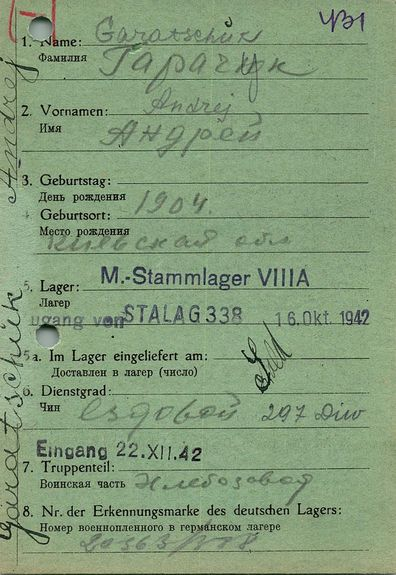 1. Name: Garatschuk
Фамилия Гарачук
2. Vornamen: Andrej
Имя Андрей
3. Geburtstag:
День рождения 1904
4 Geburtsort:
Место рождения
Киевская обл
5. Lager: M.-Stammlager VIIIA
Лагер
ugang von STALAG 338 16. Okt. 1942
5a. Im Lager eingeliefert am:
Доставлен в лагер (число)
6. Dienstgrad:
Чин ездовой 297 Diw
Eingang 22. XII. 42
7. Truppenteil:
Воинская часть Хлебозавод
8. Nr. der Erkennungsmarke des deutschen Lagers:
Номер военнопленного в германском лагере
20363/338
Garatschuk Andrej